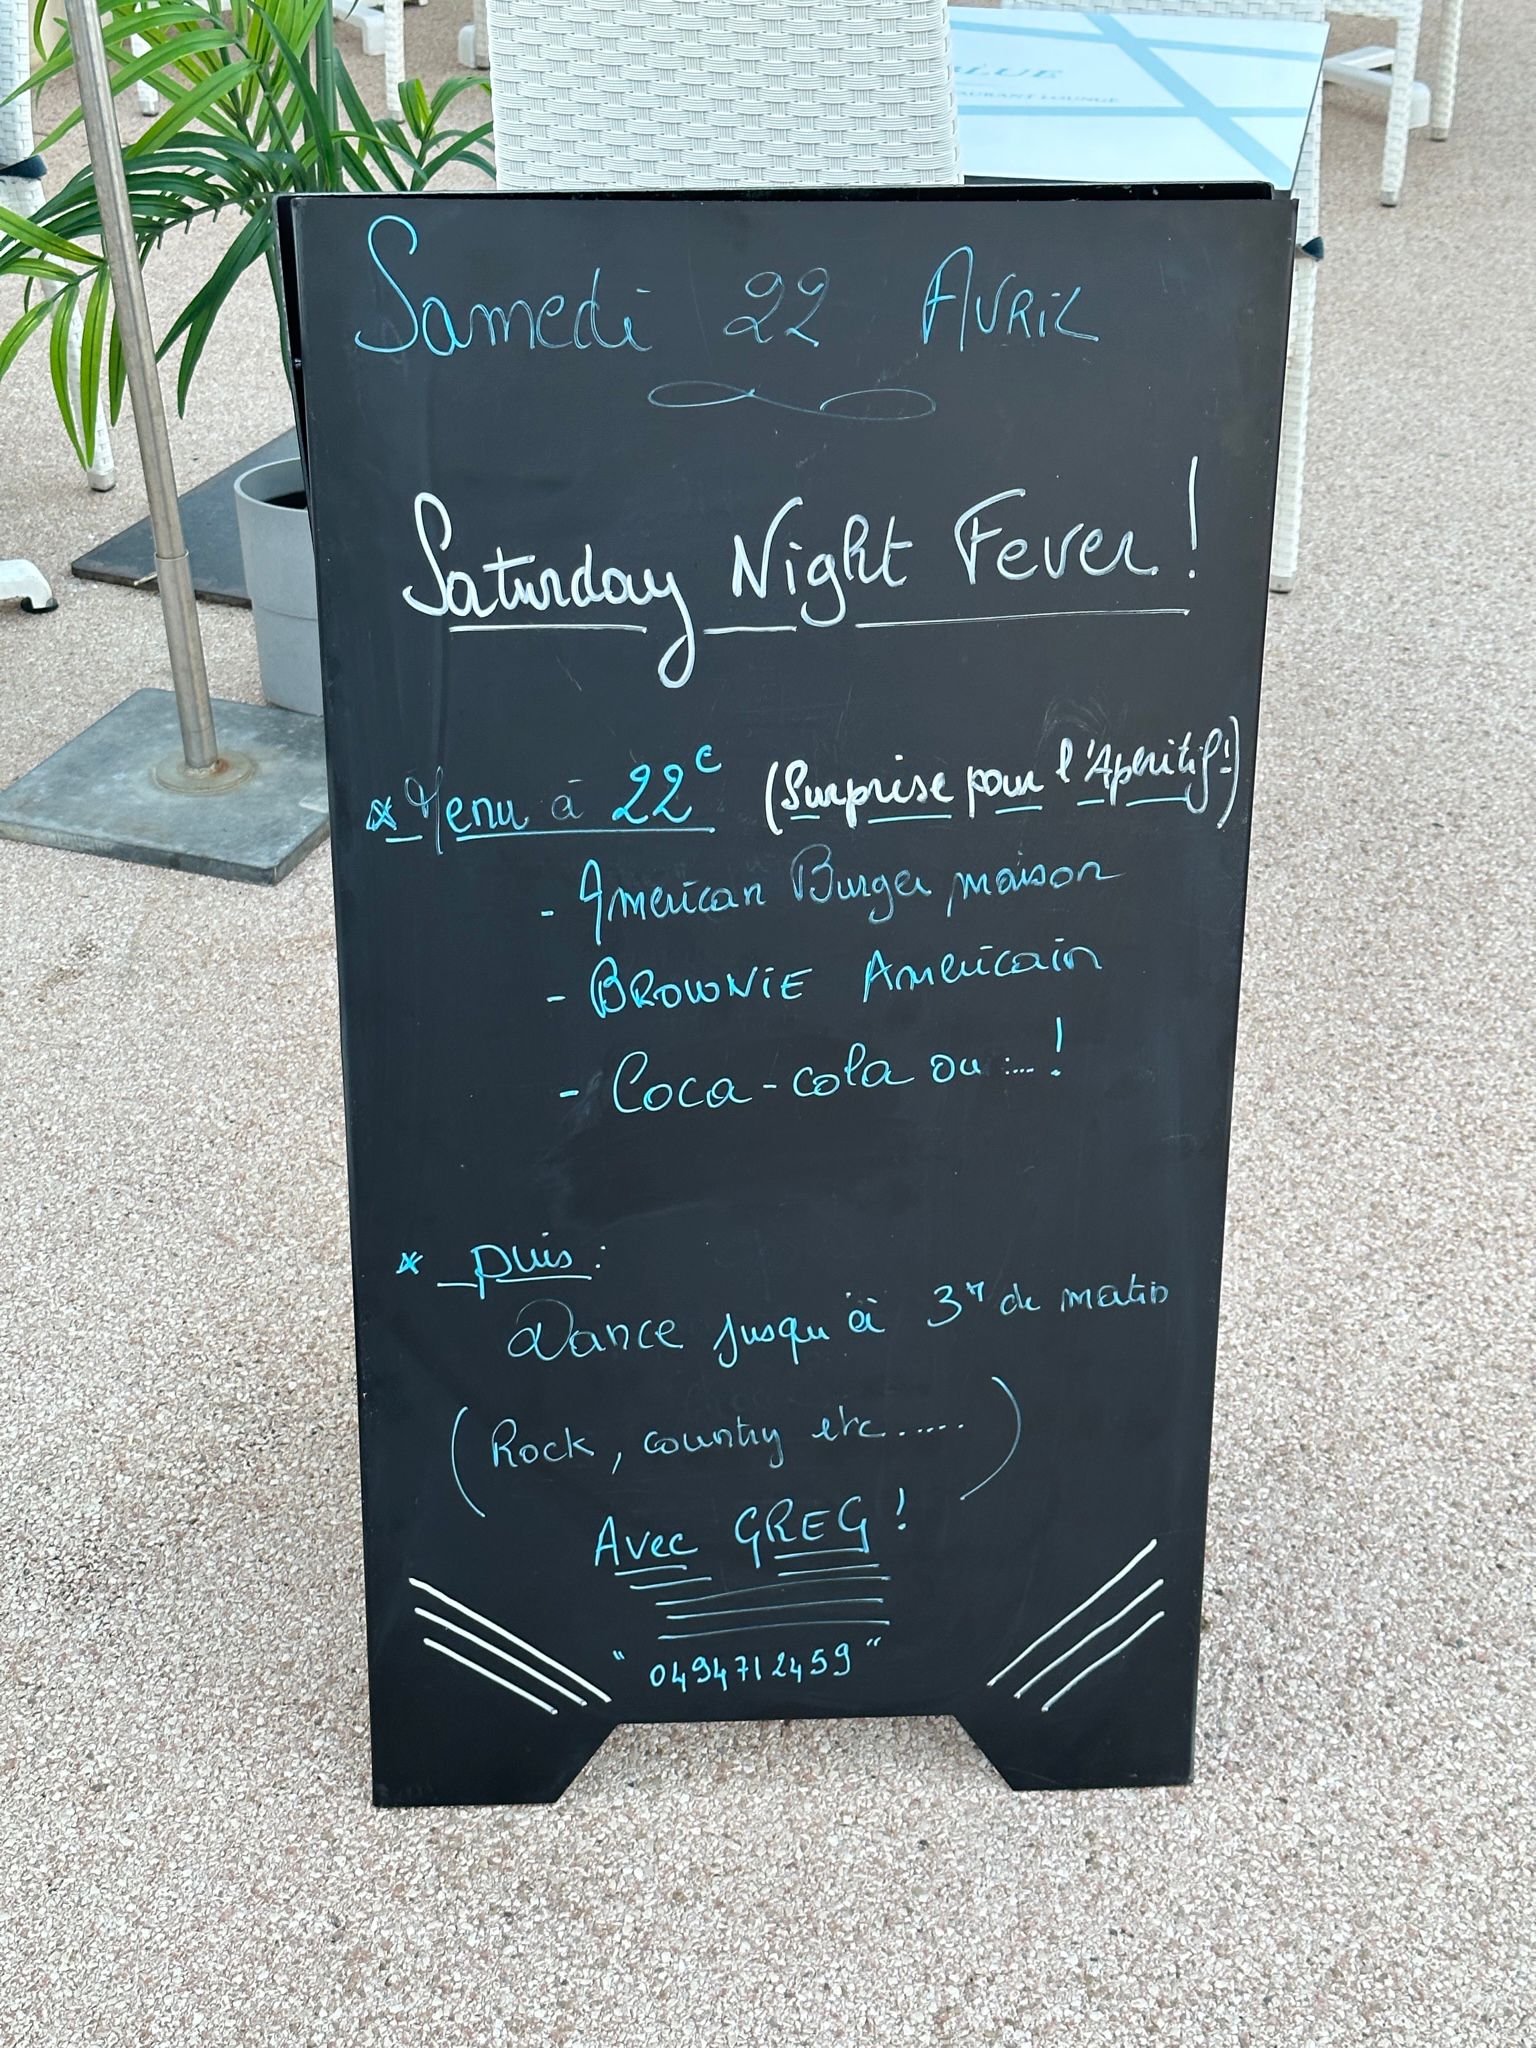 BLUE
AURANT LOUNGE
Samedi 22 Avril
Saturday Night Fever !
* Menu à 22€ (Surprise pour l'Aperitif !)
- American Burger maison
- BROWNIE Americain
- Coca-cola ou ... !
* puis :
Dance jusqu'à 3h du matin
(Rock, country etc......)
Avec GREG !
" 0494712459 "